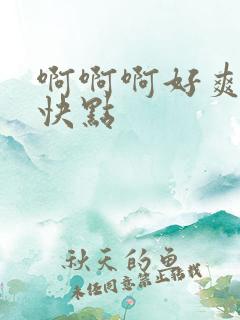 啊啊啊好爽
快點
秋天的鱼
未经同意禁止转载